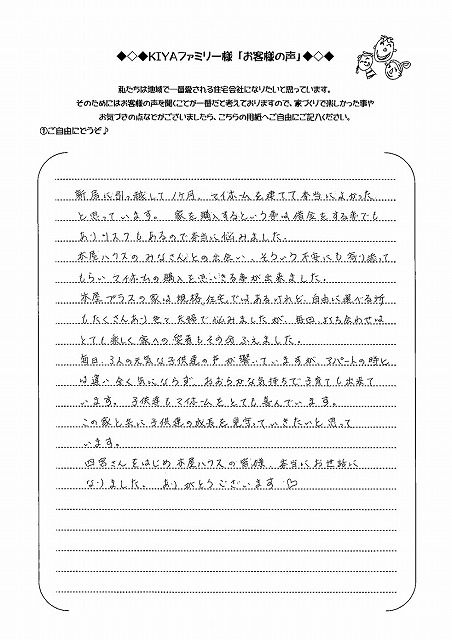 ◆◇◆KIYAファミリー様「お客様の声」◆◇◆
私たちは地域で一番愛される住宅会社になりたいと思っています。
そのためにはお客様の声を聞くことが一番だと考えておりますので、家づくりで楽しかった事や
お気づきの点などがございましたら、こちらの用紙へご自由にご記入ください。
①ご自由にどうぞ♪
新居に引っ越して1ヶ月。マイホームを建てて本当によかった
と思っています。家を購入するという事は借金をする事でも
ありリスクもあるので本当に悩みました。
木屋ハウスのみなさんとの出会い、そういう不安にも寄り添って
もらいマイホームの購入を思いきる事が出来ました。
木屋プラスの家は規格住宅ではあるけれど、自由に選べる所
もたくさんあり色々夫婦で悩みましたが、毎回、打ち合わせは
とても楽しく家への愛着もその分ふえました。
毎日、3人の元気な子供達の声が響いていますが、アパートの時と
は違い全く気にならず、おおらかな気持ちで子育ても出来て
います。子供達もマイホームをとても喜んでいます。
この家と共に子供達の成長を見守っていきたいと思って
います。
四宮さんをはじめ木屋ハウスの皆様、本当にお世話に
なりました。ありがとうございます♡